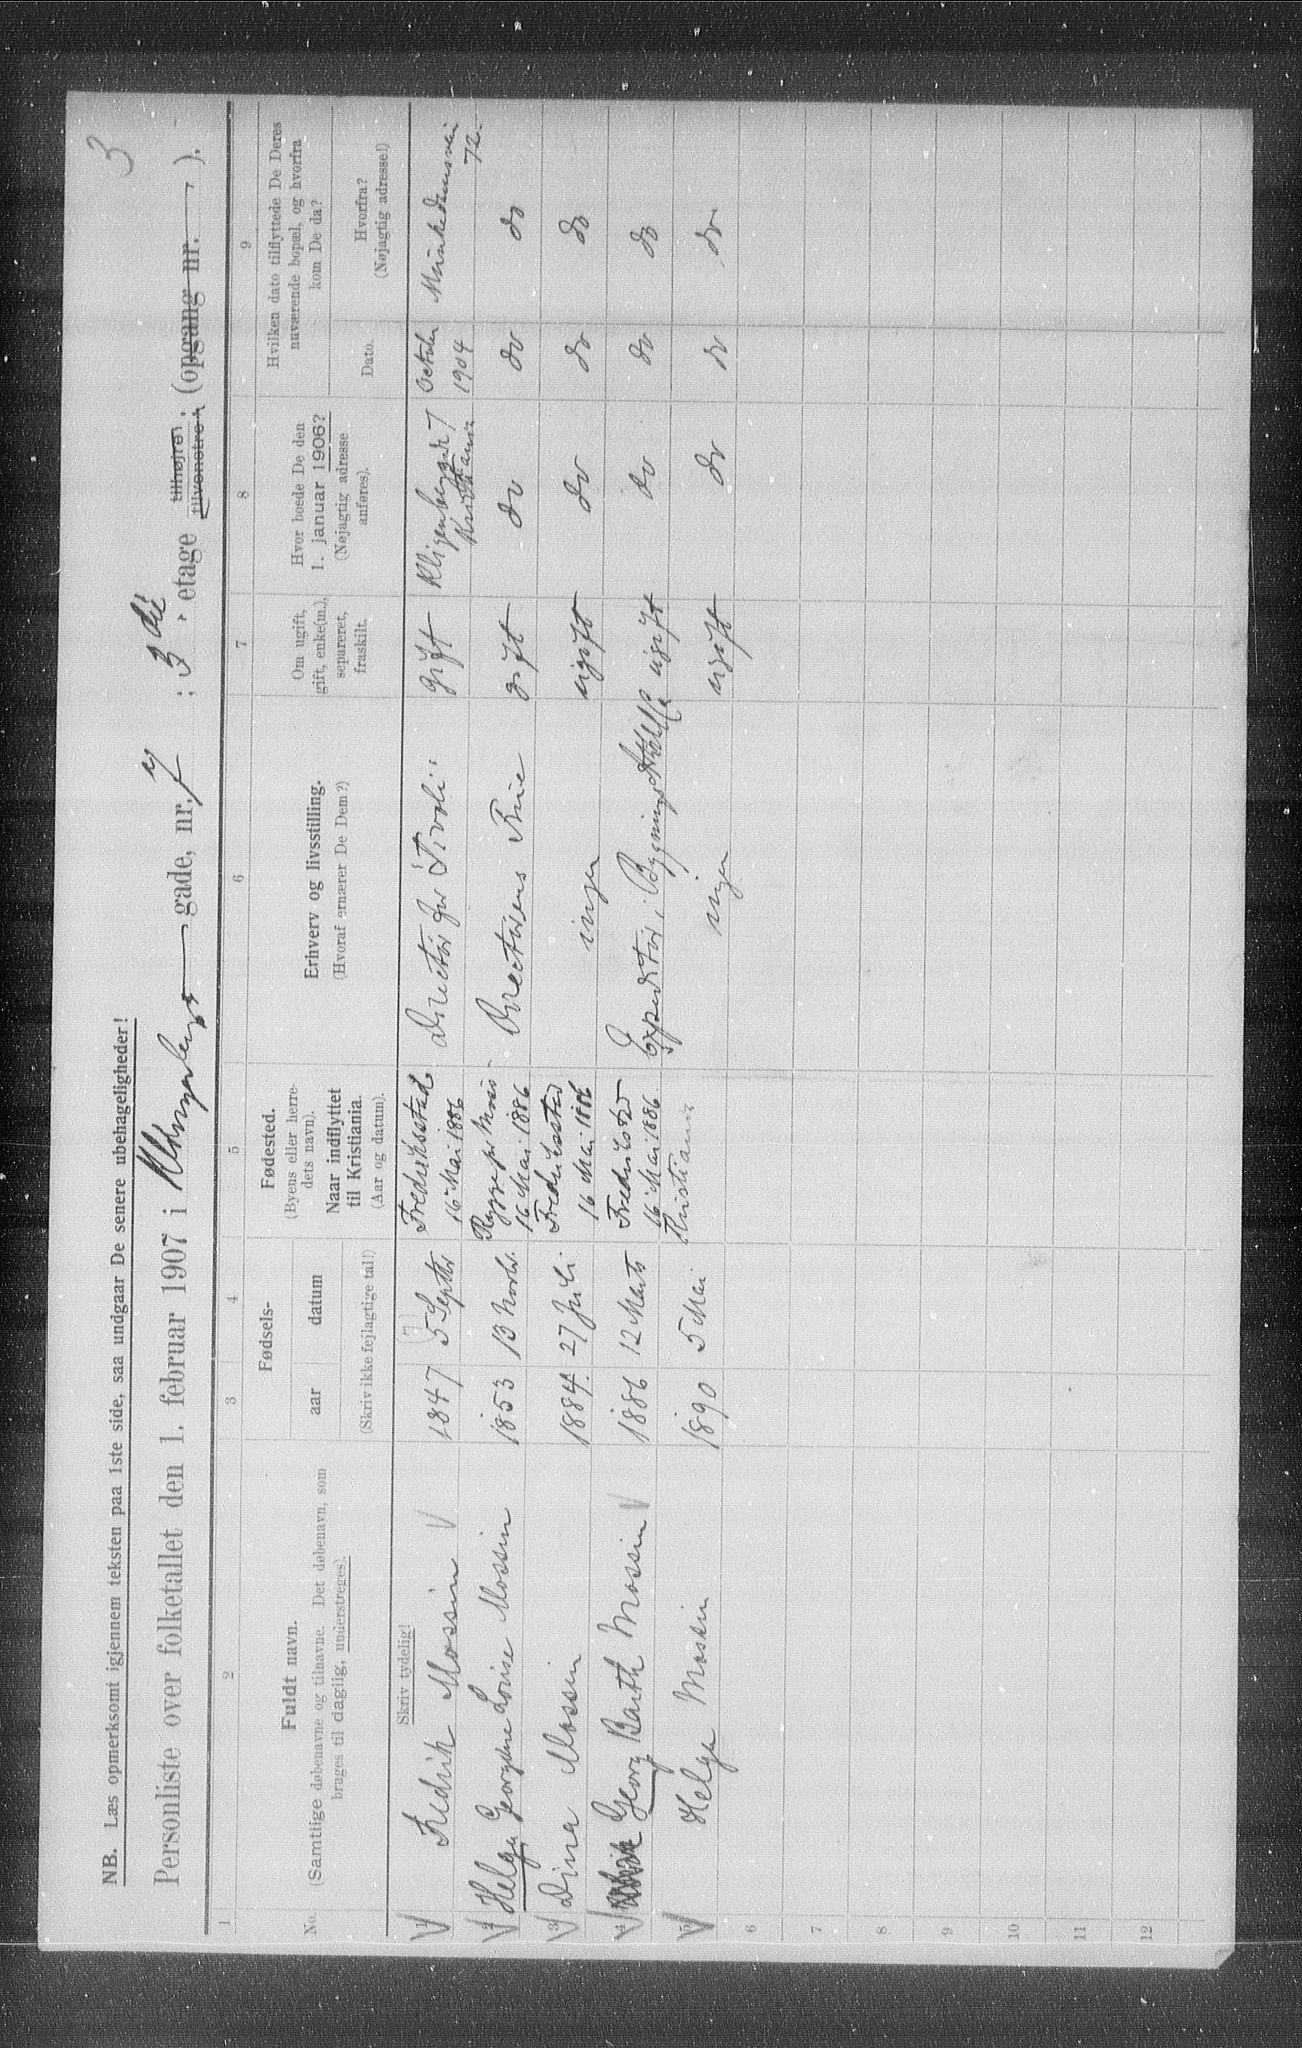 3
NB. Læs opmerksomt igjennem teksten paa 1ste side, saa undgaar De senere ubehageligheder!
Personliste over folketallet den 1. februar 1907 i Klingenbergs gade, nr. 7 ; 3 die etage tilhøjre tilvenstre ; (opgang nr. — ).
1 2 3 4 5 6 7 8 9
No.
Fuldt navn.
(Samtlige døbenavne og tilnavne. Det døbenavn, som
bruges til daglig, understreges).
Fødsels-
aar datum
(Skriv ikke fejlagtige tal!)
Fødested.
(Byens eller herre-
dets navn).
Naar indflyttet
til Kristiania.
(Aar og datum).
Erhverv og livsstilling.
(Hvoraf ernærer De Dem?)
Om ugift,
gift, enke(m.),
separeret,
fraskilt.
Hvor boede De den
1. januar 1906?
(Nøjagtig adresse
anføres).
Hvilken dato tilflyttede De Deres
nuværende bopæl, og hvorfra
kom De da?
Dato.
Hvorfra?
(Nøjagtig adresse!)
Skriv tydelig!
1 Fredrik Mossin 1847 5 Septbr Fredriksstad Director for Tivoli gift Klingenberggd 7 October Munkedamsvei
16 Mai 1886 Kristiania 1904 72.
2 Helga Georgine Louise Mossin 1853 13 Novbr. Rygge pr Moss Directørens Frue gift do do do
16 Mai 1886
3 Dina Mossin 1884. 27 Juli Fredriksstad ingen ugift do do do
16 Mai 1886
4 Georg Barth Mossin 1886 12 Marts Fredriksstad Expeditør i Bygnings ugift do do do
16 Mai 1886.
5 Helge Mossin 1890 5 Mai Kristiania ingen ugift do do do
6
7
8
9
10
11
12